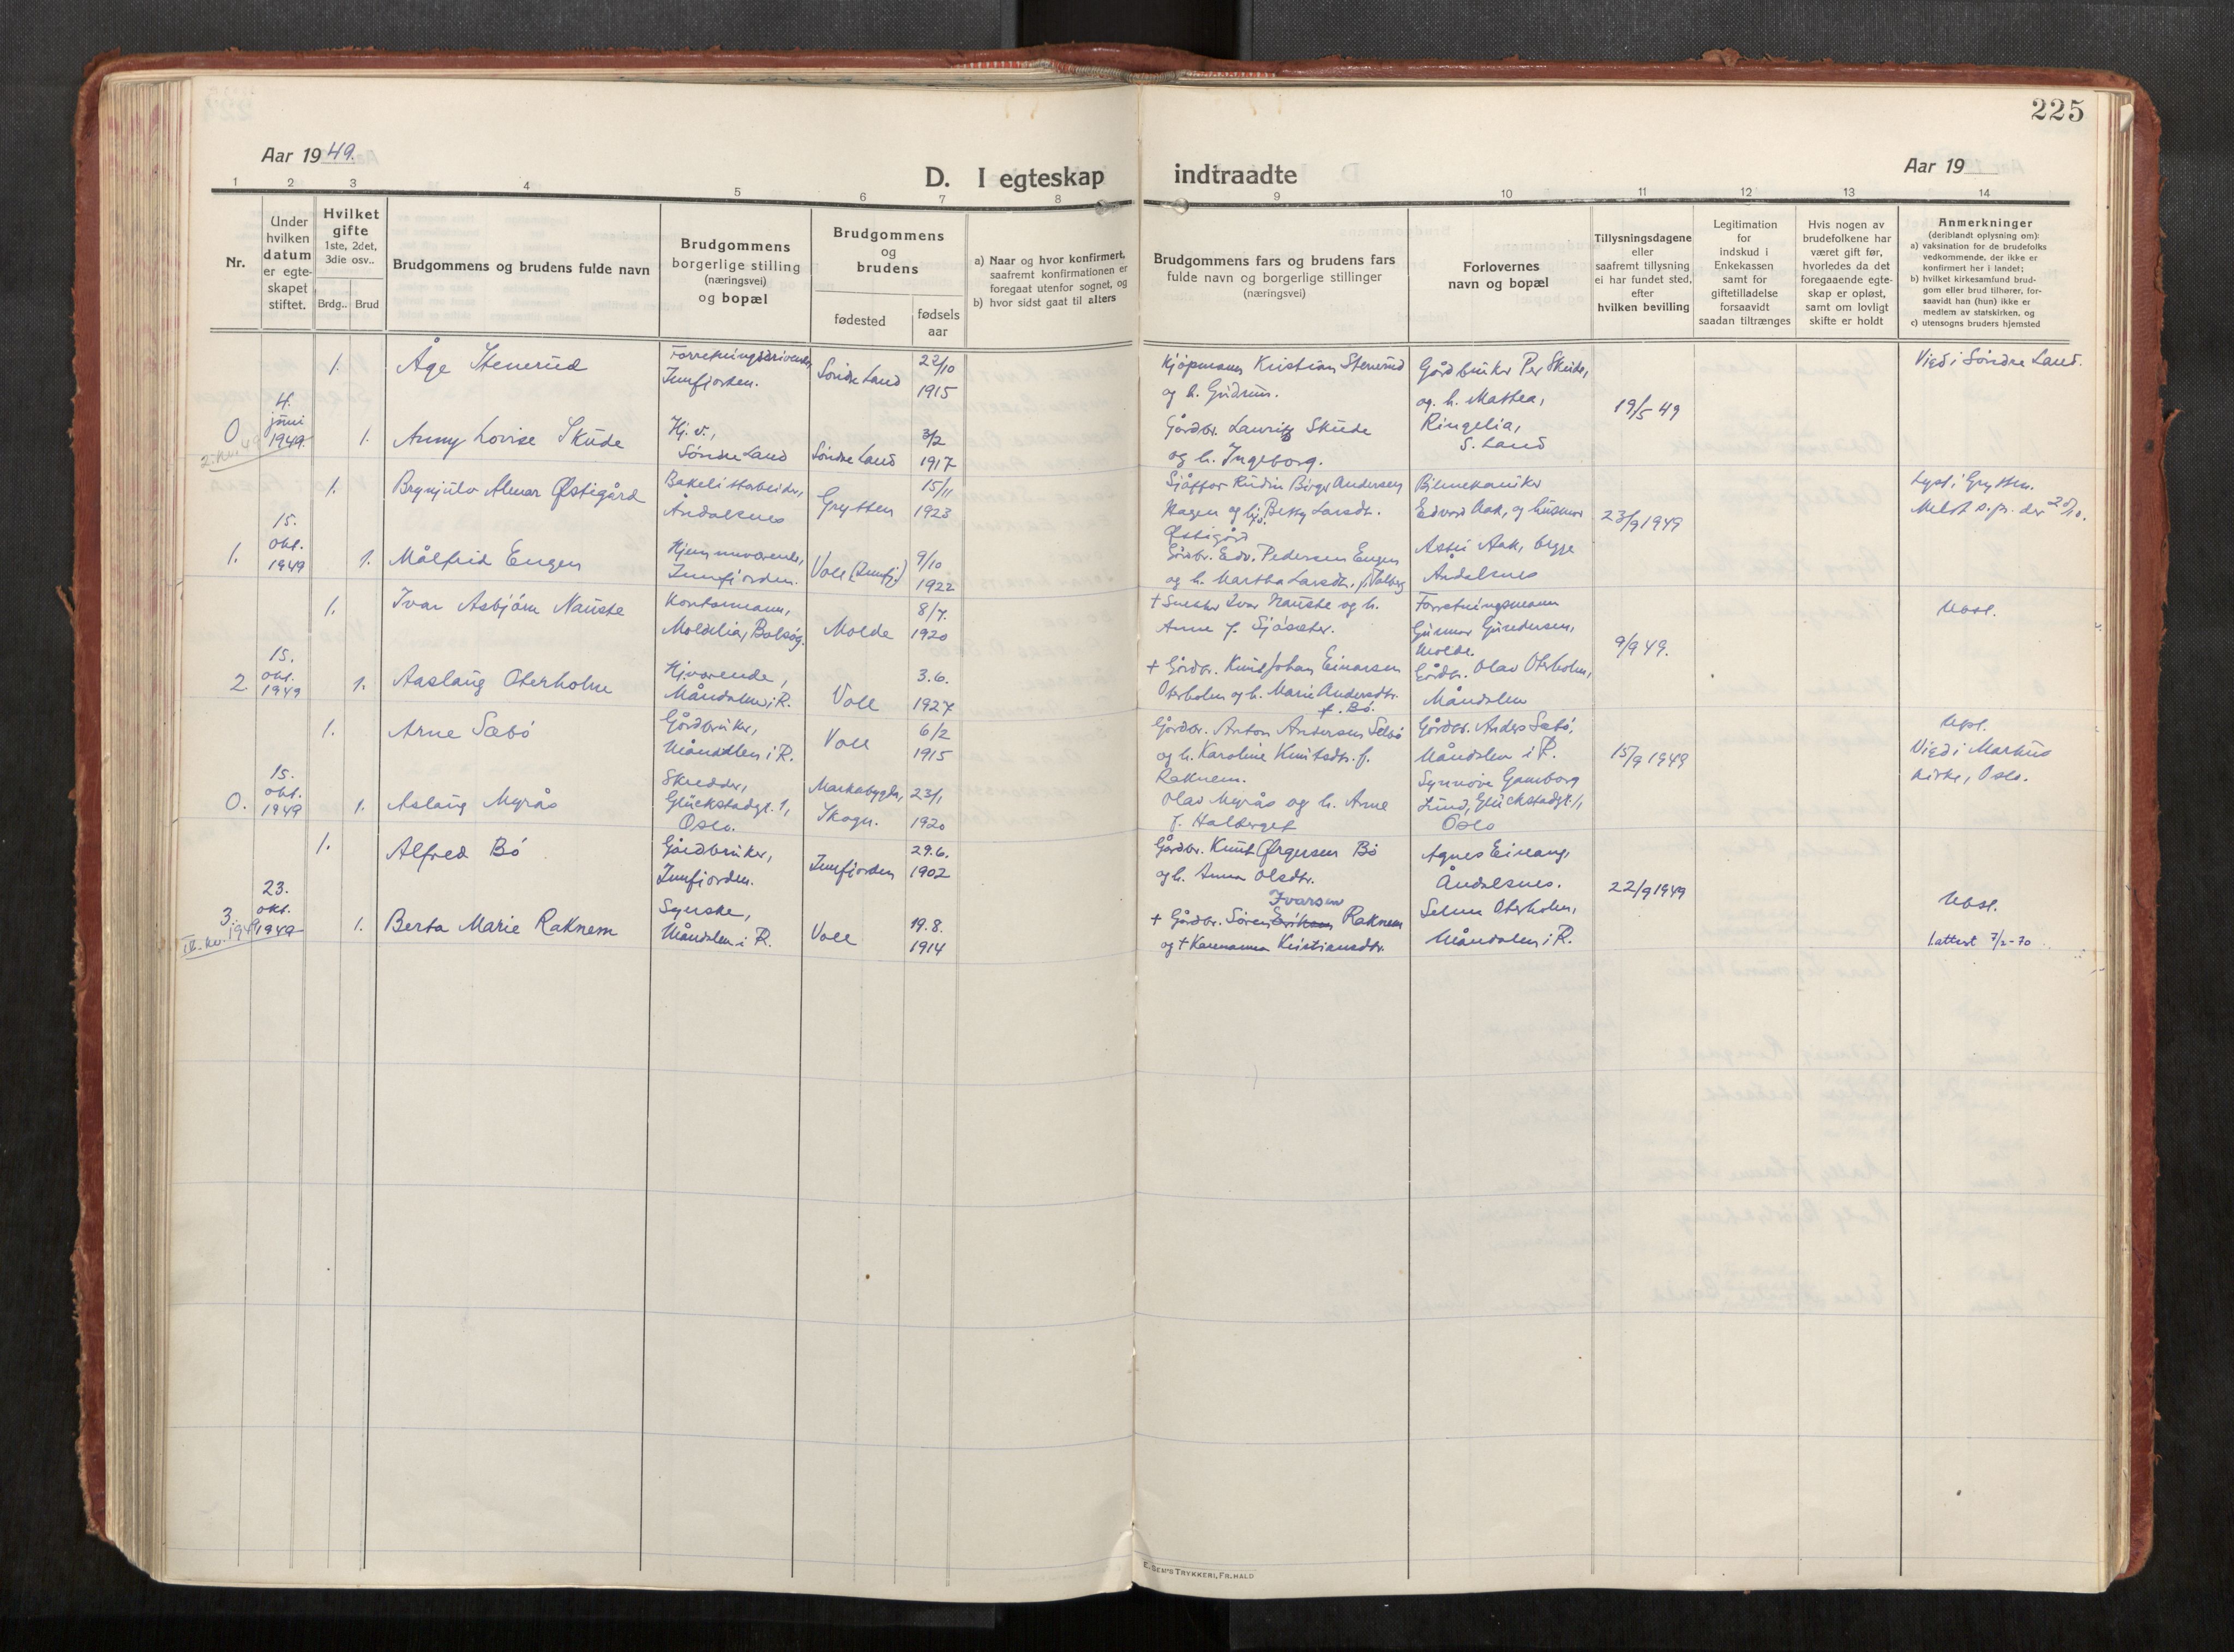 225
Aar 19 49.
D. I egteskap indtraadte
Aar 19
1 2 3 4 5 6 7 8 9 10 11 12 13 14
Nr.
Under hvilken datum er egte- skapet stiftet.
Hvilket gifte
1ste, 2det, 3die osv..
Brdg.. Brud
Brudgommens og brudens fulde navn
Brudgommens borgerlige stilling (næringsvei) og bopæl
Brudgommens og brudens
fødested
fødsels aar
a) Naar og hvor konfirmert, saafremt konfirmationen er foregaat utenfor sognet, og
b) hvor sidst gaat til alters
Brudgommens fars og brudens fars fulde navn og borgerlige stillinger (næringsvei)
Forlovernes navn og bopæl
Tillysningsdagene eller saafremt tillysning ei har fundet sted, efter hvilken bevilling
Legitimation for indskud i Enkekassen samt for giftetilladelse forsaavidt saadan tiltrænges
Hvis nogen av brudefolkene har været gift før, hvorledes da det foregaaende egte- skap er opløst, samt om lovligt skifte er holdt
Anmerkninger
(deriblandt oplysning om):
a) vaksination for de brudefolks vedkommende, der ikke er konfirmert her i landet;
b) hvilket kirkesamfund brud- gom eller brud tilhører, for- saavidt han (hun) ikke er medlem av statskirken, og
c) utensogns bruders hjemsted
1. Åge Stenerud
Forretningsdrivende,
Innfjorden.
Søndre Land
22/10
1915
Kjøpmann Kristian Stenerud
og h. Gudrun.
Gårdbruker Per Skute,
og h. Mathea,
Ringelia,
S. Land
19/5 49
Viet i Søndre Land.
0
4.
juni
1949
1. Anny Lovise Skute
Hj. v.,
Søndre Land
Søndre Land
3/2
1917
Gårdbr. Lauritz Skute
og h. Ingeborg.
1. Brynjulv Almar Østigård
Bakelittarbeider,
Åndalsnes
Grytten
15/11
1923
Sjåffør Rudin Birger Andersen
Hagen og hj. Betsy Larsdt.
Østigård
Bilmekaniker
Edvard Aak, og husmor
Astri Aak, begge
Åndalsnes
23/9 1949
Lyst i Grytten.
Meldt s.pr. der 20/10.
1.
15.
okt.
1949
1. Målfrid Engen
Hjemmeværende,
Innfjorden.
Voll (Innfj.)
9/10
1922
Gårdbr. Edv. Pedersen Engen
og h. Martha Larsdt. f. Dalberg
1. Ivar Asbjørn Nauste
Kontormann,
Moldelia, Bolsøy.
Molde
8/7.
1920
+ Snekker Ivar Nauste og h.
Anne f. Sjøsæter.
Forretningsmann
Gunnar Gundersen,
Molde.
9/9 49.
Ubsl.
2.
15.
okt.
1949
1. Aaslaug Oterholm
Hj.værende,
Måndalen i R.
Voll
3.6.
1927
+ Gårdbr. Knut Johan Einarsen
Oterholm og h. Marie Andersdtr.
f. Bø.
Gårdbr. Olav Oterholm,
Måndalen
1. Arne Sæbø
Gårdbruker,
Måndalen i R.
Voll
6/2
1915
Gårdbr. Anton Andersen Sæbø
og h. Karoline Knutsdtr. f.
Raknem.
Gårdbr. Anders Sæbø,
Måndalen i R.
15/9 1949
Ubsl.
Viet i Markus
kirke, Oslo.
0.
15.
okt.
1949
1. Aslaug Myrås
Skredder,
Glückstadgt. 1,
Oslo.
Markabygda,
Skogn.
23/1
1920
Olav Myrås og h. Arne
f. Halberget
Synnøve Gamborg
Lund, Glückstadgt. 1,
Oslo
1. Alfred Bø
Gårdbruker,
Innfjorden.
Innfjorden
29.6.
1902
Gårdbr. Knut Ørgersen Bø
og h. Anna Olsdtr.
Agnes Einang,
Åndalsnes.
22/9 1949
Ubsl.
3.
23.
okt.
1949
1. Berta Marie Raknem
Syerske,
Måndalen i R.
Voll
19.8.
1914
Ivarsen
+ Gårdbr. Søren Raknem
og + Karenanna Kristiansdtr.
Selma Oterholm,
Måndalen i R.
1.attest 7/2-70
SEN'S TRYKKERI, FR. HALD